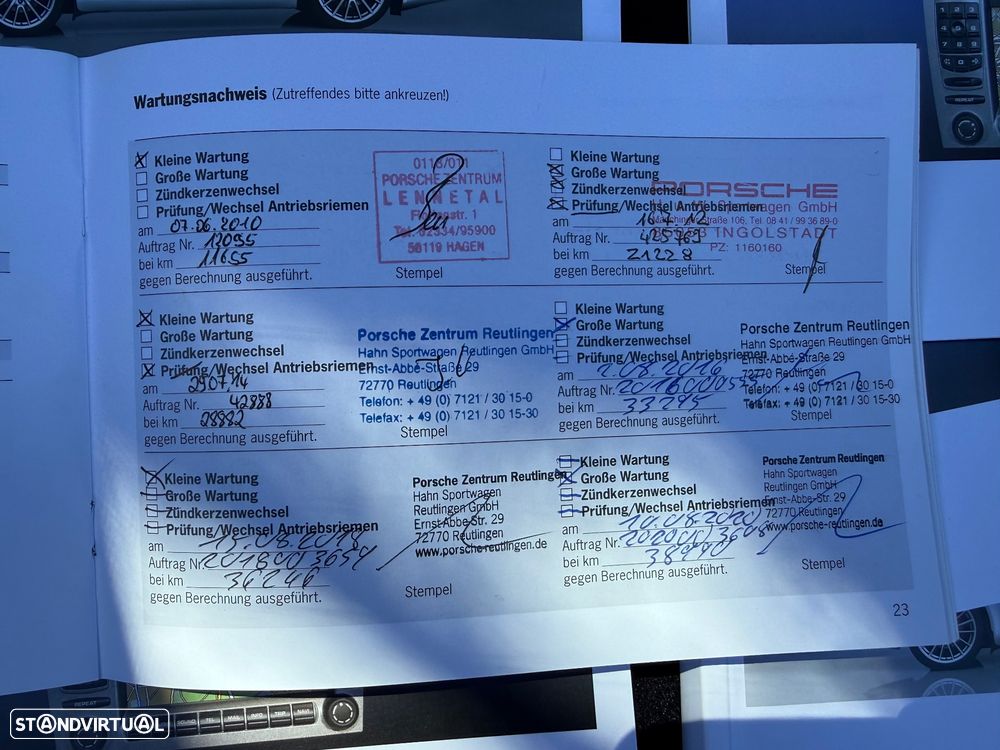 Wartungsnachweis (Zutreffendes bitte ankreuzen!)
Kleine Wartung
Große Wartung
Zündkerzenwechsel
Prüfung/Wechsel Antriebsriemen
am 07.06.2010
Auftrag Nr. 12095
bei km 11655
gegen Berechnung ausgeführt.
PORSCHE ZENTRUM
LENNETAL
Tel. 02334/95900
58119 HAGEN
Stempel
Kleine Wartung
Große Wartung
Zündkerzenwechsel
Prüfung/Wechsel Antriebsriemen
am
Auftrag Nr.
bei km 21228
gegen Berechnung ausgeführt.
PORSCHE
Sportwagen GmbH
straße 106, Tel. 08 41 / 99 36 89-0
INGOLSTADT
PZ: 1160160
Stempel
Kleine Wartung
Große Wartung
Zündkerzenwechsel
Prüfung/Wechsel Antriebsriemen
am 29.07.14
Auftrag Nr. 42888
bei km 28882
gegen Berechnung ausgeführt.
Porsche Zentrum Reutlingen
Hahn Sportwagen Reutlingen GmbH
Ernst-Abbé-Straße 29
72770 Reutlingen
Telefon: + 49 (0) 7121 / 30 15-0
Telefax: + 49 (0) 7121 / 30 15-30
Stempel
Kleine Wartung
Große Wartung
Zündkerzenwechsel
Prüfung/Wechsel Antriebsriemen
am 2.08.2016
Auftrag Nr.
bei km 33295
gegen Berechnung ausgeführt.
Porsche Zentrum Reutlingen
Hahn Sportwagen Reutlingen GmbH
Ernst-Abbé-Straße 29
72770 Reutlingen
Telefon: + 49 (0) 7121 / 30 15-0
Telefax: + 49 (0) 7121 / 30 15-30
Stempel
Kleine Wartung
Große Wartung
Zündkerzenwechsel
Prüfung/Wechsel Antriebsriemen
am
Auftrag Nr.
bei km 36246
gegen Berechnung ausgeführt.
Porsche Zentrum Reutlingen
Hahn Sportwagen
Reutlingen GmbH
Ernst-Abbé-Str. 29
72770 Reutlingen
www.porsche-reutlingen.de
Stempel
Kleine Wartung
Große Wartung
Zündkerzenwechsel
Prüfung/Wechsel Antriebsriemen
am 10.08.2020
Auftrag Nr.
bei km
gegen Berechnung ausgeführt.
Porsche Zentrum Reutlingen
Hahn Sportwagen
Reutlingen GmbH
Ernst-Abbé-Str. 29
72770 Reutlingen
www.porsche-reutlingen.de
Stempel
23
STANDVIRTUAL